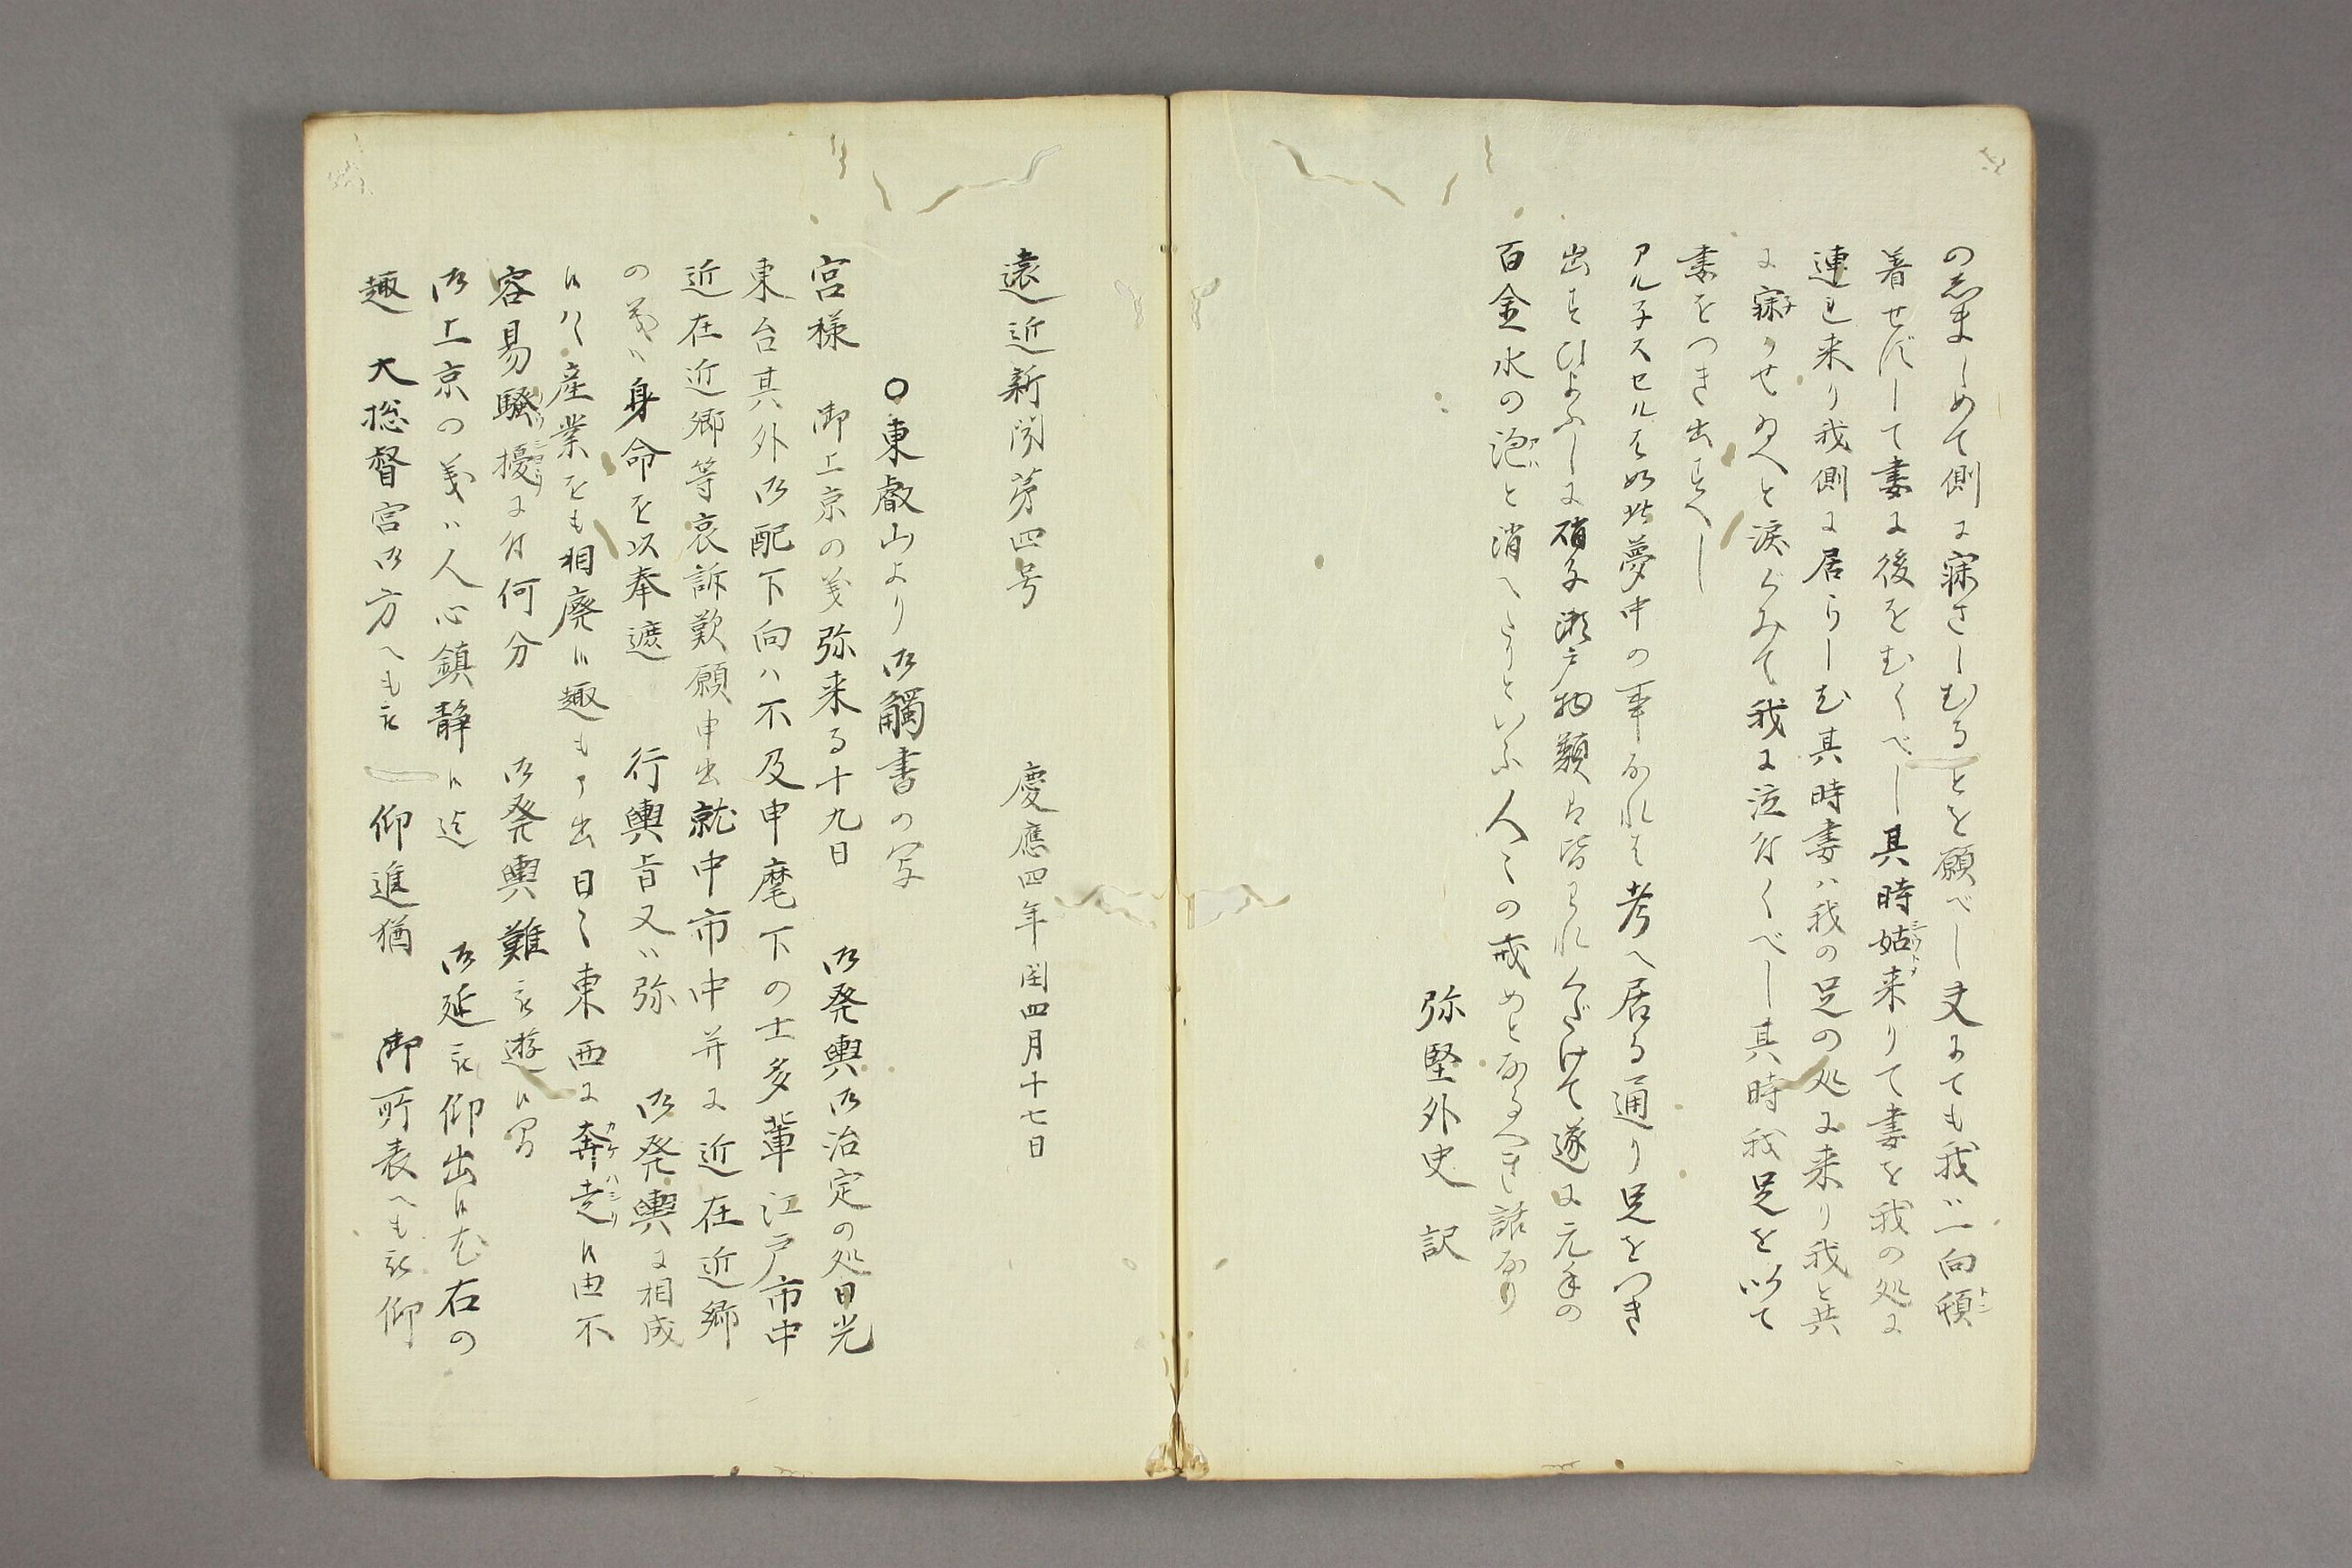 の恋ましめて側に寐さしむることを願べし夫にても我ハ一向頓
着せずして妻に後をむくべし其時姑来りて妻を我の処に
連れ来り我側に居らしむ其時妻ハ我の足の処に来り我と共
に寐かせ給へと涙ぐみて我に泣付くべし其時我足を以て
妻をつき出すべし
アルナスセルは如此夢中の事なれは考へ居る通り足をつき
出すひようしに硝子瀬戸物類は皆われくだけて遂に元手の
百金水の泡と消へたりといふ人々の戒めとなるへき話なり
弥堅外史 訳
遠近新聞第四号 慶應四年閏四月十七日
○東叡山より御觸書の写
宮様 御上京の義弥来る十九日 御発輿御治定の処日光
東台其外御配下向ハ不及申麾下の士多輩江戸市中
近在近郷等哀訴歎願申出就中市中并に近在近郷
の義ハ身命を以奉遮 行輿旨又ハ弥 御発輿に相成
候ハヽ産業をも相廃候趣も申出日々東西に奔走候由不
容易騒擾に付何分 御発輿難被遊候間
御上京の義ハ人心鎮静候迄 御延被仰出候尤右の
趣 大総督宮御方へも被 仰進猶 御所表へも被仰